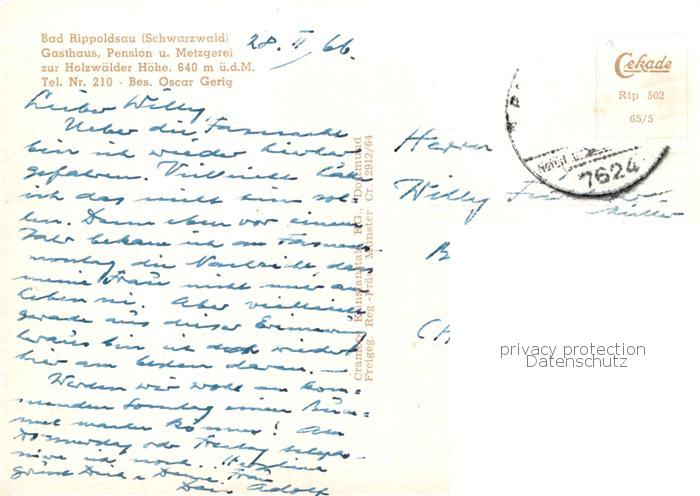 Bad Rippoldsau (Schwarzwald)
Gasthaus, Pension u. Metzgerei
zur Holzwälder Höhe, 640 m ü.d.M.
Tel. Nr. 210 - Bes. Oscar Gerig
28. II. 66.
Cekade
Rip 502
65/5
7624
Lieber Willy,
Ueber die Fasnacht
bin ich wieder hierher
gefahren. Vielleicht hätte
ich das nicht tun sol-
len. Denn eben vor einem
Jahr bekam ich am Fasnacht
montag die Nachricht, dass
meine Frau nicht mehr am
Leben sei. Aber vielleicht
gerade aus dieser Erinnerung
heraus bin ich doch wieder
hier am besten daran. —
Werden wir wohl am kom-
menden Sonntag einen Bum-
mel machen können? Am
Donnerstag oder Freitag telepho-
niere ich noch. Herzliche
Grüsse Dir & Deiner Frau
Dein Adolf
Cramers Kunstanstalt KG., Dortmund
Freigeg. Reg.-Präs. Münster Cr. 2912/64
Herrn
Willy
B
CH
privacy protection
Datenschutz